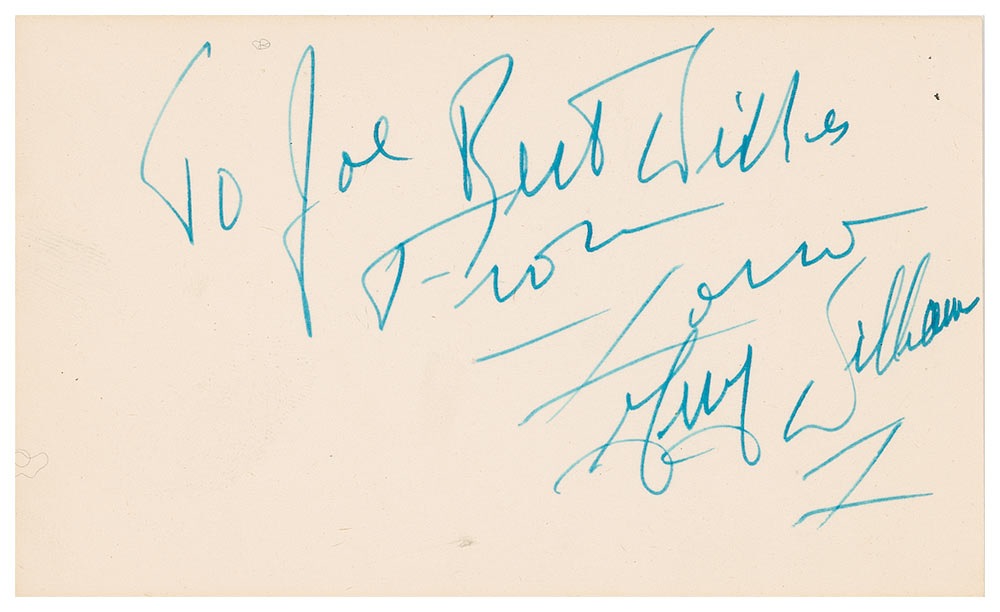 To Joe Best Wishes
From
Zorro
Guy Williams
Z